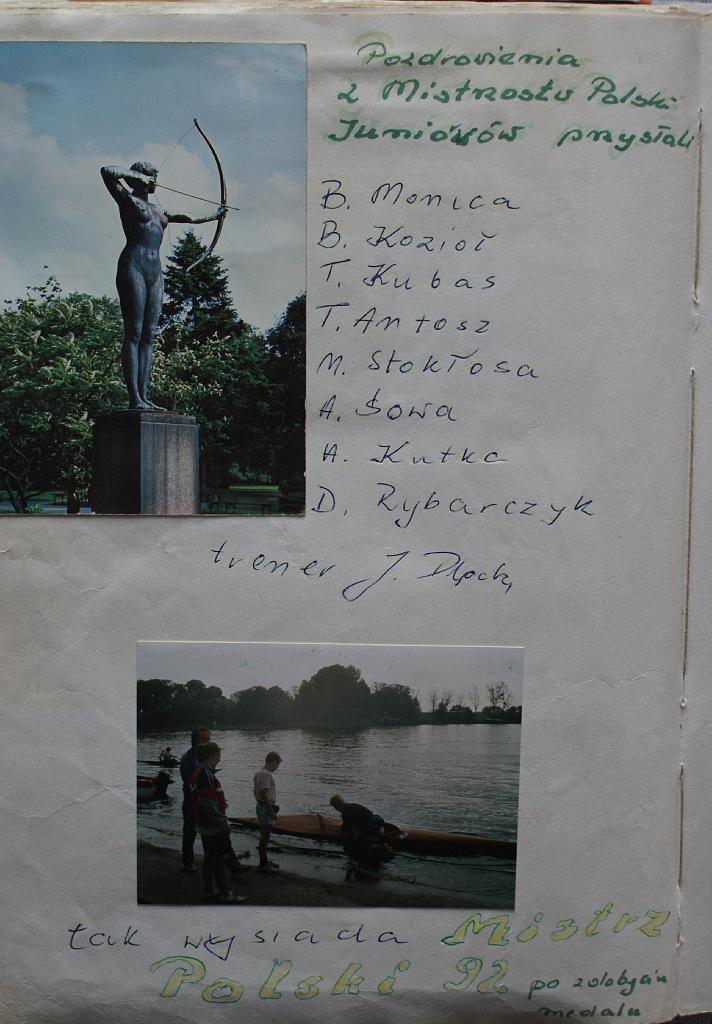 Pozdrowienia
z Mistrzostw Polski
Juniorów przysłali
B. Monica
B. Kozioł
T. Kubas
T. Antosz
M. Stokłosa
A. Sowa
A. Kutka
D. Rybarczyk
trener J.
tak wysiada Mistrz
Polski 92 po zdobyciu
medalu